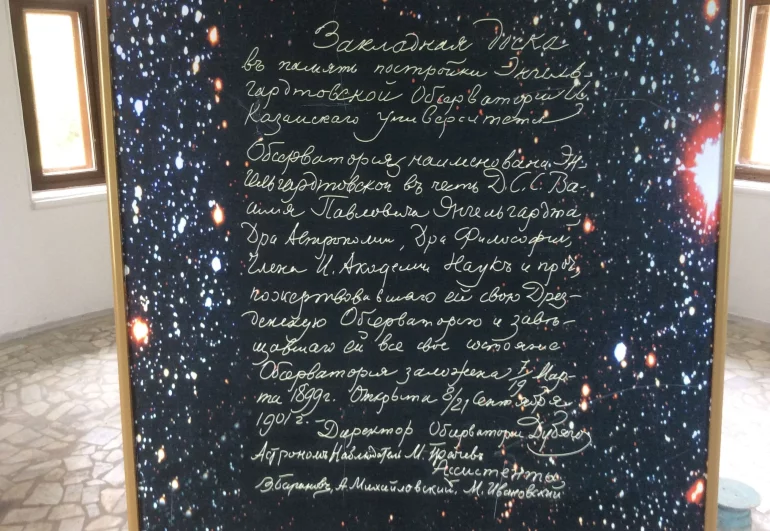 Закладная доска
въ память постройки Энгель-
гардтовской Обсерваторіи Им.
Казанскаго Университета
Обсерваторія наименована Эн-
гельгардтовской въ честь Д.С.С. Ва-
силія Павловича Энгельгардта
Дра Астрономіи, Дра Философіи,
Члена И. Академіи Наукъ и проч,
пожертвовавшаго ей свою Дрез-
денскую Обсерваторію и завѣ-
щавшаго ей все свое состояніе
Обсерваторія заложена 7/19 Мар-
та 1899г. Открыта 8/21 Сентября
1901 г.
Директор Обсерваторіи Дубяго
Астрономъ Наблюдатель М. Грачевъ
Ассистенты
В. Барановъ, А. Михайловский, М. Ивановский